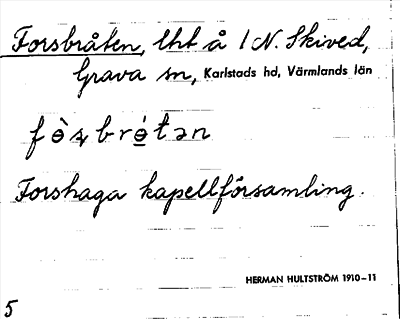 Forsbråten, lht å 1 N. Skived,
Grava sn, Karlstads hd, Värmlands län
Forshaga kapellförsamling.
HERMAN HULTSTRÖM 1910–11
5